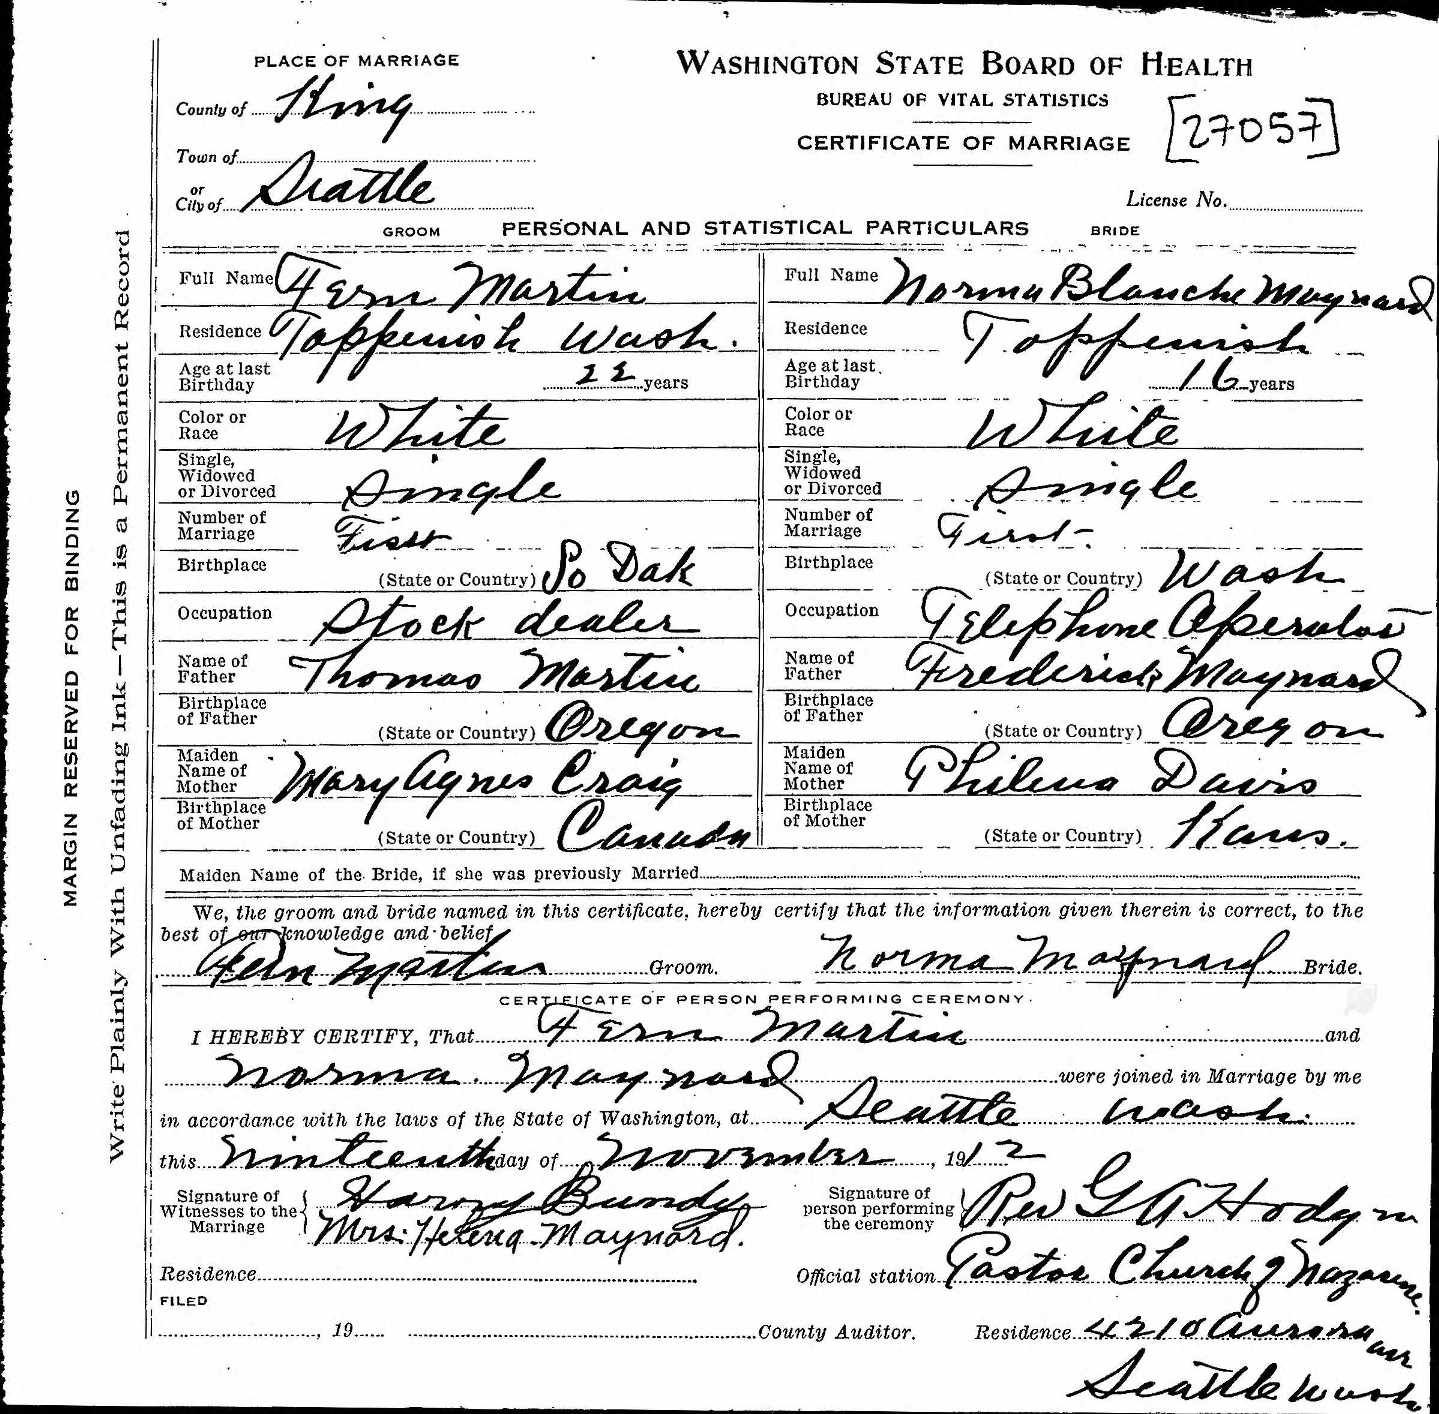 PLACE OF MARRIAGE
WASHINGTON STATE BOARD OF HEALTH
BUREAU OF VITAL STATISTICS
CERTIFICATE OF MARRIAGE
[27057]
County of King
Town of
or
City of Seattle
License No.
GROOM PERSONAL AND STATISTICAL PARTICULARS BRIDE
Full Name Fern Martin
Residence Toppenish Wash.
Age at last Birthday 22 years
Color or Race White
Single, Widowed or Divorced Single
Number of Marriage First
Birthplace (State or Country) So Dak
Occupation Stock dealer
Name of Father Thomas Martin
Birthplace of Father (State or Country) Oregon
Maiden Name of Mother Mary Agnes Craig
Birthplace of Mother (State or Country) Canada
Full Name Norma Blanche Maynard
Residence Toppenish
Age at last Birthday 16 years
Color or Race White
Single, Widowed or Divorced Single
Number of Marriage First.
Birthplace (State or Country) Wash
Occupation Telephone Operator
Name of Father Frederick Maynard
Birthplace of Father (State or Country) Oregon
Maiden Name of Mother Philena Davis
Birthplace of Mother (State or Country) Kans.
Maiden Name of the Bride, if she was previously Married
We, the groom and bride named in this certificate, hereby certify that the information given therein is correct, to the
best of our knowledge and belief
Fern Martin Groom. Norma Maynard Bride.
CERTIFICATE OF PERSON PERFORMING CEREMONY.
I HEREBY CERTIFY, That Fern Martin and
Norma Maynard were joined in Marriage by me
in accordance with the laws of the State of Washington, at Seattle Wash.
this Ninteenth day of November, 1912
Signature of Witnesses to the Marriage { Harry Bundy
Mrs. Helena Maynard.
Signature of person performing the ceremony } Rev G A Hodgin
Residence
Official station Pastor Church of Nazarene.
FILED
, 19 County Auditor.
Residence 4210 Aurora ave
Seattle Wash
MARGIN RESERVED FOR BINDING
Write Plainly With Unfading Ink—This is a Permanent Record